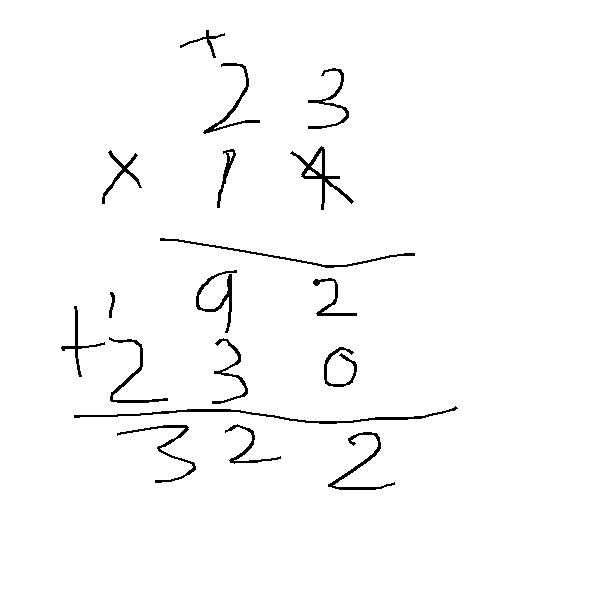 +
23
× 14
92
1
+230
322